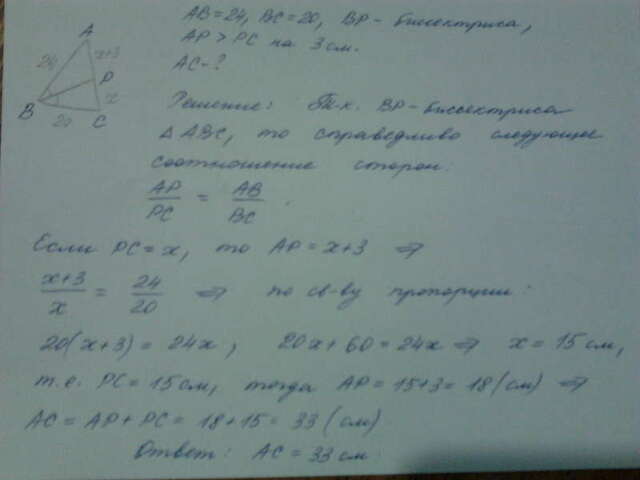 AB=24, BC=20, BP- биссектриса,
AP > PC на 3 см.
AC-?
A
24
x+3
P
x
B
20
C
Решение: Т.к. BP-биссектриса
△ABC, то справедливо следующее
соотношение сторон:
AP/PC = AB/BC.
Если PC=x, то AP=x+3 ⇒
x+3/x = 24/20 ⇒ по св-ву пропорции:
20(x+3)=24x; 20x+60=24x ⇒ x=15см,
т.е. PC=15см, тогда AP=15+3=18(см) ⇒
AC=AP+PC=18+15=33(см)
Ответ: AC=33см.